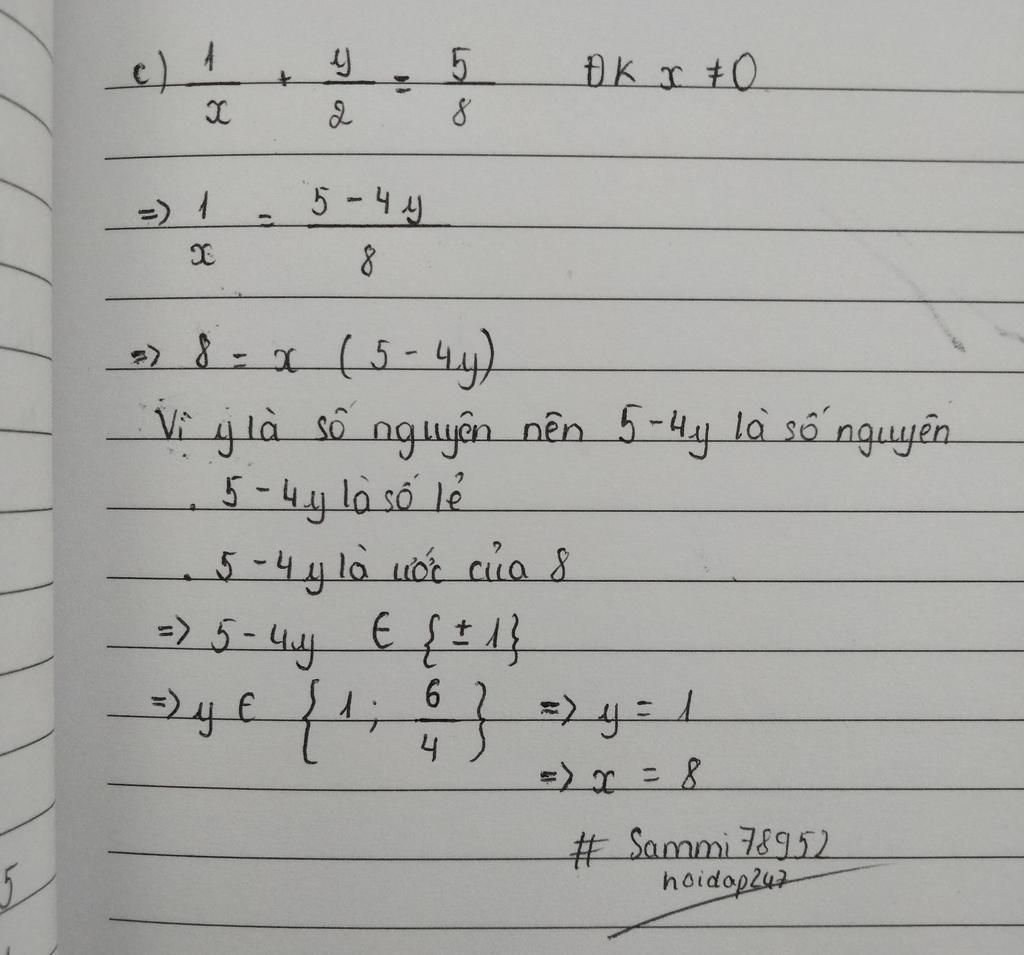 c) 1/x + y/2 = 5/8 ĐK x ≠ 0
=> 1/x = (5 - 4y)/8
=> 8 = x (5 - 4y)
Vì y là số nguyên nên 5-4y là số nguyên
. 5-4y là số lẻ
. 5-4y là ước của 8
=> 5-4y ∈ {± 1}
=> y ∈ {1; 6/4} => y = 1
=> x = 8
# Sammi78952
hoidap247
5